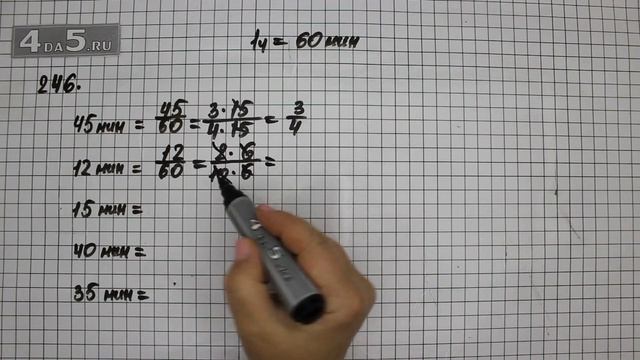 4DA5.RU
1ч = 60 мин
246.
45 мин = 45/60 = 3·15/4·15 = 3/4
12 мин = 12/60 = 2·6/10·6 =
15 мин =
40 мин =
35 мин =
4DA5.RU